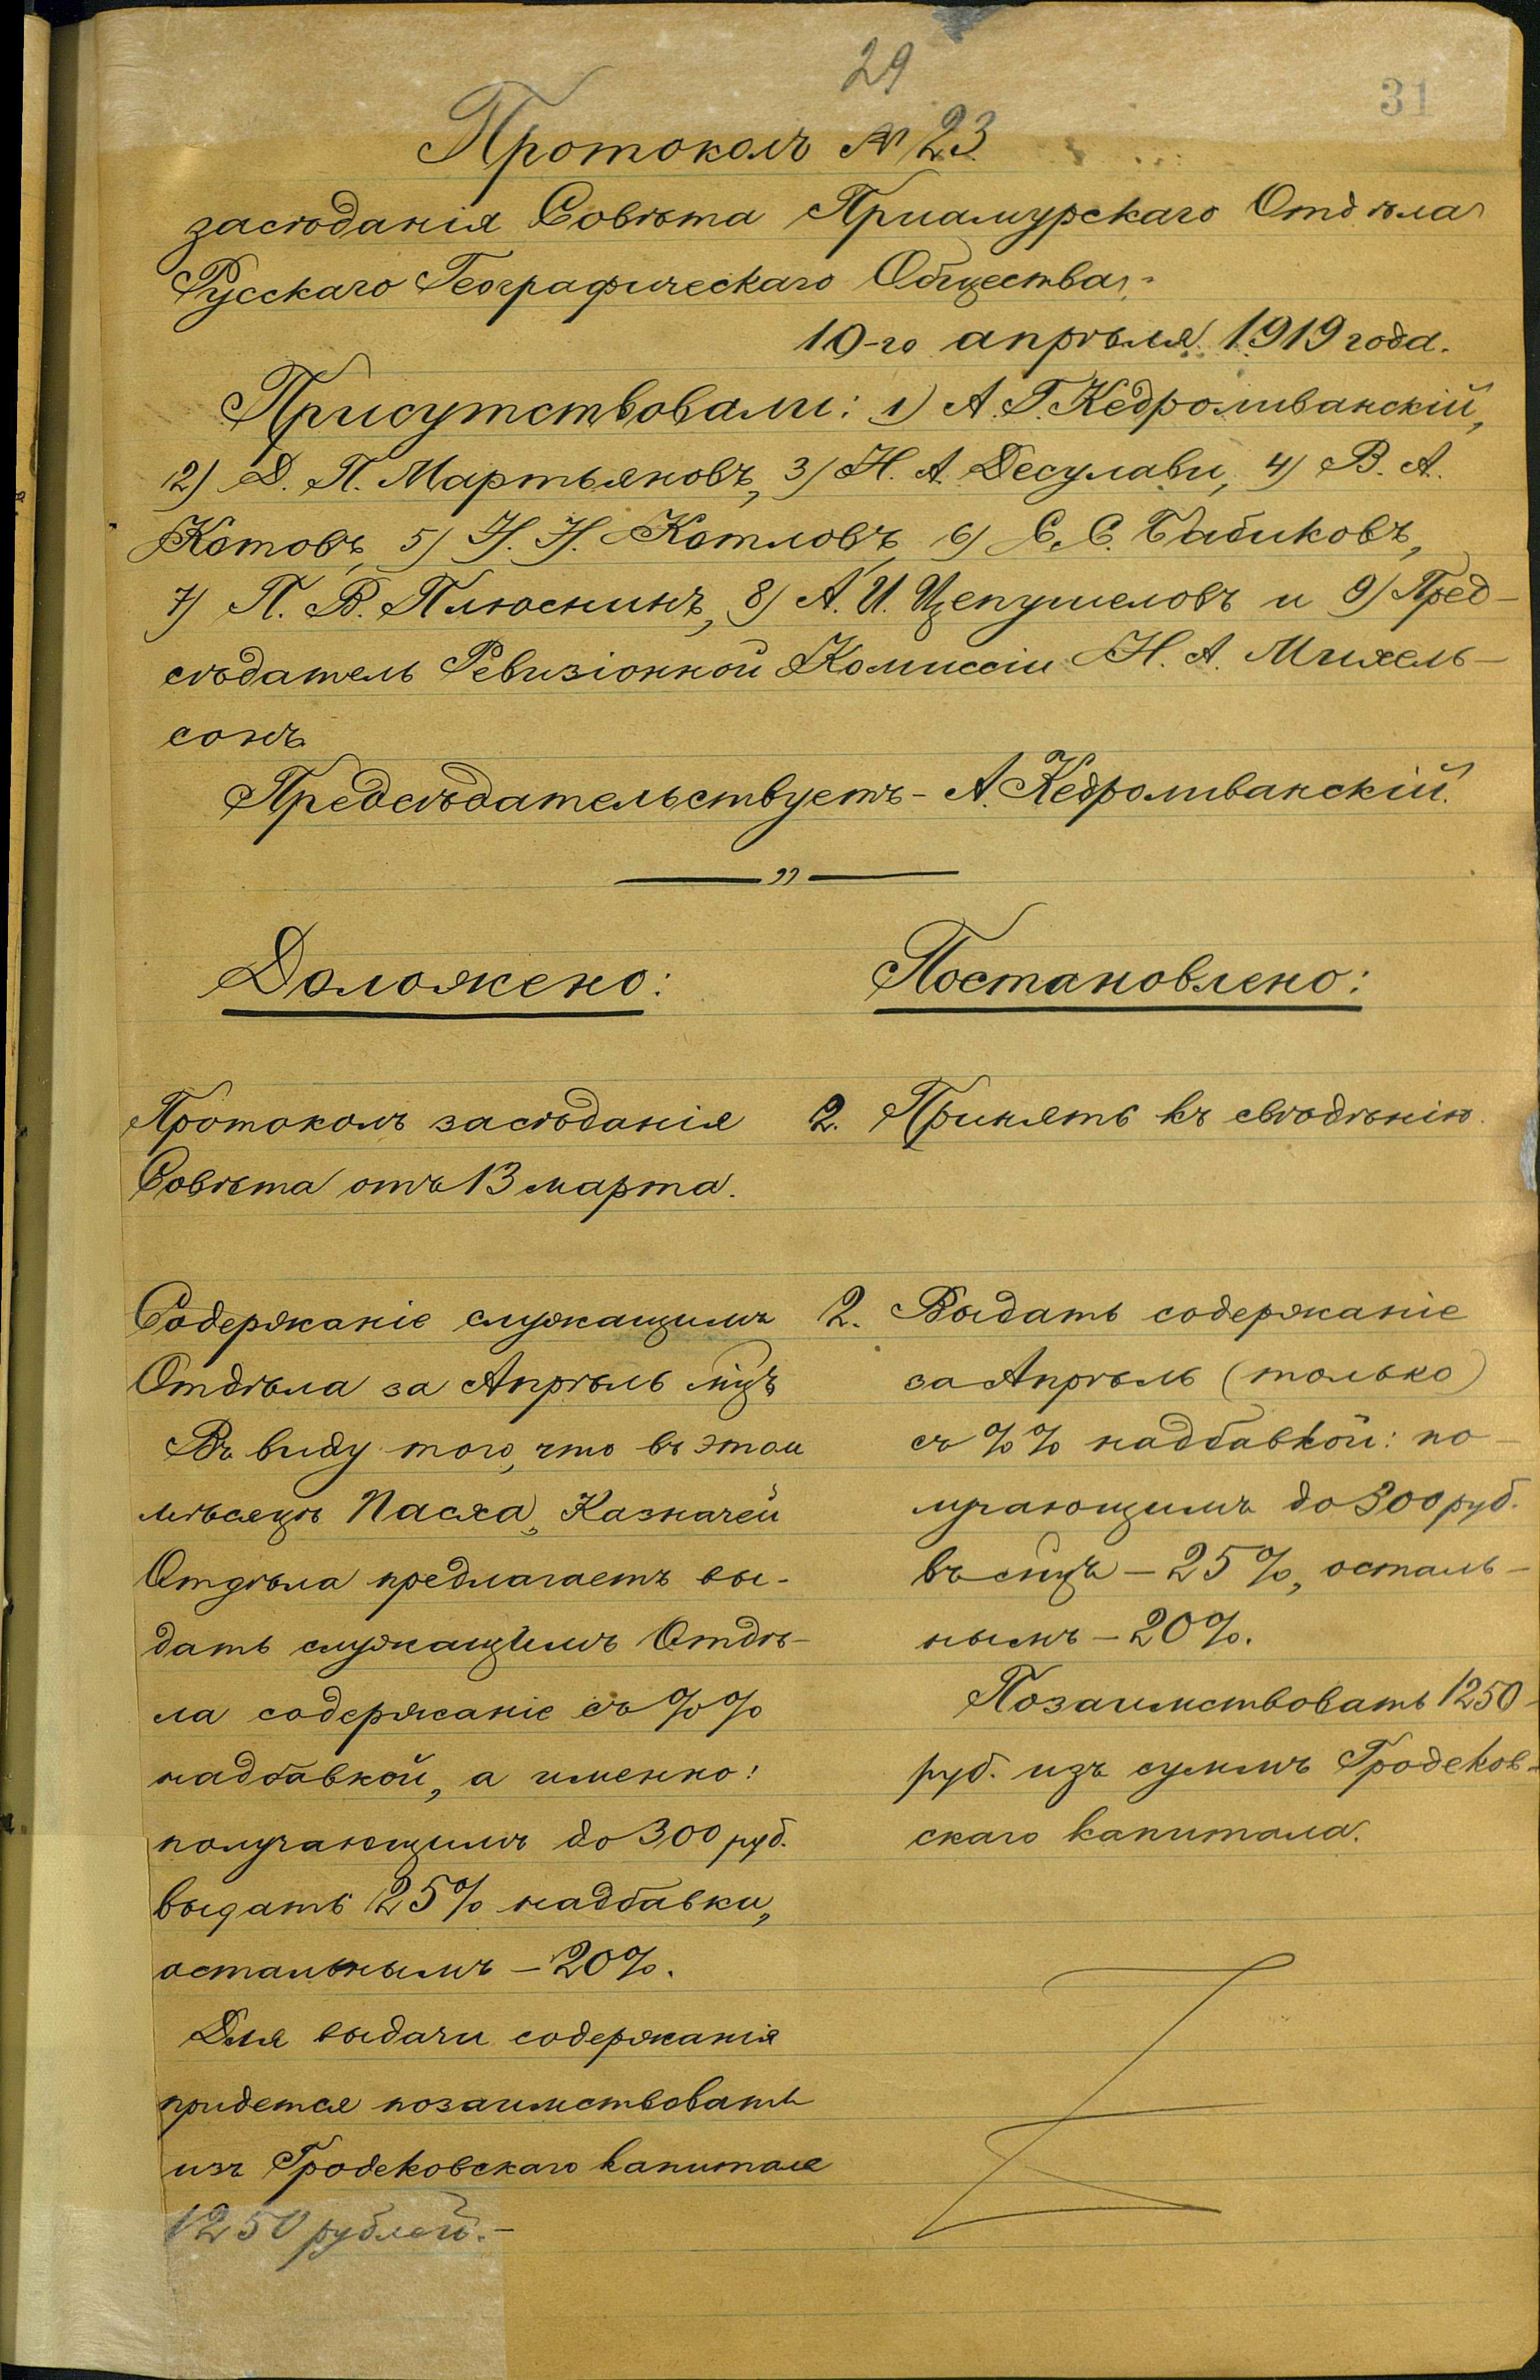 29
31
Протоколъ № 23
засѣданія Совѣта Приамурскаго Отдѣла
Русскаго Географическаго Общества,
10-го апрѣля 1919 года.
Присутствовали: 1) А. Г. Кедроливанскій,
2) Д. П. Мартьяновъ, 3) Н. А. Десулави, 4) В. А.
Котовъ, 5) Н. Н. Котловъ, 6) С. С. Бабиковъ,
7) П. В. Плюснинъ, 8) А. И. Щепушеловъ и 9) Пред-
сѣдатель Ревизіонной Комиссіи Н. А. Михель-
сонъ
Предсѣдательствуетъ - А. Кедроливанскій.
Доложено:
Протоколъ засѣданія
Совѣта отъ 13 марта.
Содержаніе служащимъ
Отдѣла за Апрѣль мцъ
Въ виду того, что въ этом
мѣсяцѣ Пасха, Казначей
Отдѣла предлагаетъ вы-
дать служащимъ Отдѣ-
ла содержаніе съ %%
надбавкой, а именно:
получающимъ до 300 руб.
выдать 25% надбавки,
остальнымъ - 20%.
Для выдачи содержанія
придется позаимствовать
изъ Гродековскаго капитала
1250 рублей. -
Постановлено:
2. Принять къ свѣдѣнію.
2. Выдать содержаніе
за Апрѣль (только)
съ %% надбавкой: по-
лучающимъ до 300 руб.
въ мцъ - 25%, осталь-
нымъ - 20%.
Позаимствовать 1250-
руб. изъ суммъ Гродеков-
скаго капитала.